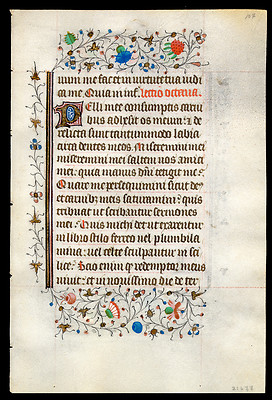 num me fac et in virtute tua iudi
ca me. Quia in inf. Lectio octava.
Pelli mee consumptis carni
bus adhesit os meum: et de
relicta sunt tantummodo labia
circa dentes meos. Miseremini mei
miseremini mei saltem vos amici
mei: quia manus dni tetigit me.
Quare me persequimini sicut deus
et carnibus meis saturamini? quis
tribuat ut scribantur sermones
mei? Quis michi det ut exarentur
in libro stilo ferreo vel plumbi
na: vel celte sculpantur in si
lice? Scio enim quod redemptor meus
vivit: et in novissimo die de ter